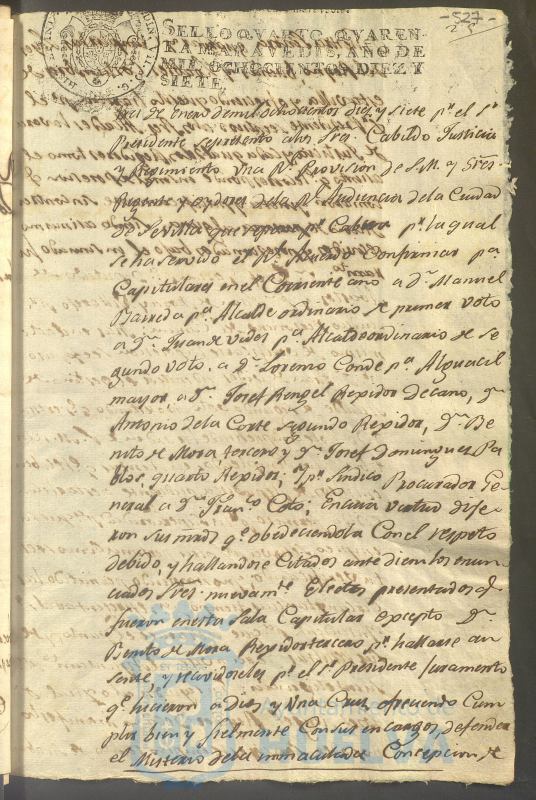 -527-
SELLO QVARTO, QVAREN-
TA MARAVEDIS, AÑO DE
MIL OCHOCIENTOS DIEZ Y
SIETE.
de enero de mil ochocientos diez y siete pr. el Sr.
Presidente se presento a los Sres. Cabildo Justicia
y Regimiento una Rl. Provision de S.M. y Sres
Regente y oydores de la Rl. Audiencia de la Ciudad
de Sevilla que pr. Cabeza pr. la qual
se ha servido el Rl. Acuerdo Confirmar pa.
Capitulares en el Corriente año a Dn. Manuel
Barreda pa. Alcalde ordinario de primer voto
a Dn. Juan de Vides pa. Alcalde ordinario de se
gundo voto. a Dn. Lorenzo Conde pa. Alguacil
mayor a Dn. Josef Rengel Rexidor decano, Dn.
Antonio de la Corte segundo Rexidor, Dn. Be
nito de Mora, tercero y Dn. Josef Dominguez Pa
blos, quarto Rexidor; y pa. Sindico Procurador Ge
neral a Dn. Franco. Coto; En cuia virtud dije
ron sus mrds. qe. obedeciendola Con el respeto
debido, y hallandose Citados ante diem los enun
ciados Sres. nuevamte. Electos presentados qe.
fueron en esta Sala Capitular excepto Dn.
Benito de Mora Rexidor tercero pr. hallarse au
sente y recividoseles pr. el Sr. Presidente Juramento
qe. hicieron a Dios y Una Cruz ofreciendo Cum
plir bien y fielmente Con sus encargos, defender
el Misterio de la inmaculada Concepcion de